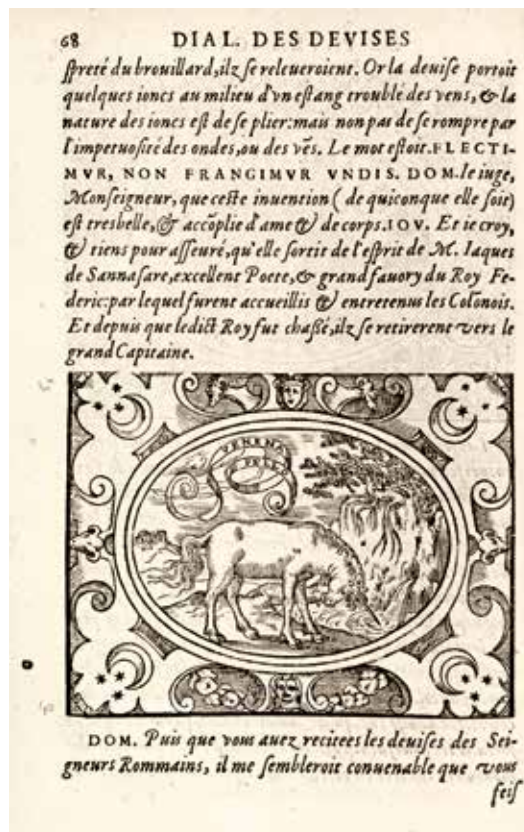 68 DIAL. DES DEVISES
ſpreté du brouillard, ilz ſe releueroient. Or la deuiſe portoit
quelques ioncs au milieu d'vn eſtang troublé des vens, & la
nature des ioncs eſt de ſe plier: mais non pas de ſe rompre par
l'impetuoſité des ondes, ou des vẽs. Le mot eſtoit. FLECTI-
MVR, NON FRANGIMVR VNDIS. DOM. Ie iuge,
Monſeigneur, que ceſte inuention (de quiconque elle ſoit)
eſt tresbelle, & accõplie d'ame & de corps. IOV. Et ie croy,
& tiens pour aſſeuré, qu'elle ſortit de l'eſprit de M. Iaques
de Sannaſare, excellent Poete, & grand fauory du Roy Fe-
deric: par lequel furent accueillis & entretenus les Colõnois.
Et depuis que ledict Roy fut chaßé, ilz ſe retirerent vers le
grand Capitaine.
VENENA
PELLO
DOM. Puis que vous auez recitees les deuiſes des Sei-
gneurs Rommains, il me ſembleroit conuenable que vous
feiſ